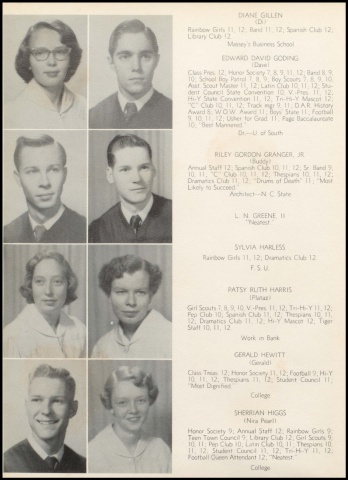 DIANE GILLEN
(Di)
Rainbow Girls 11, 12; Band 11, 12; Spanish Club 12;
Library Club 12.
Massey's Business School
EDWARD DAVID GODING
(Dave)
Class Pres. 12; Honor Society 7, 8, 9, 11, 12; Band 8, 9,
10; School Boy Patrol 7, 8, 9; Boy Scouts 7, 8, 9, 10, 11;
Asst. Scout Master 11, 12; Latin Club 10, 11, 12; Stu-
dent Council State Convention 10, V.-Pres. 11, 12;
Hi-Y State Convention 11, 12; Tri-Hi-Y Mascot 12;
"C" Club 10, 11, 12; Track mgr. 9, 11; D.A.R. History
Award 8; W.O.W. Award 11; Boys' State 11; Football
9, 10, 11, 12; Usher for Grad. 11; Page Baccalaureate
10; "Best Mannered."
Dr.—U. of South
RILEY GORDON GRANGER, JR.
(Buddy)
Annual Staff 12; Spanish Club 10, 11, 12; Sr. Band 9,
10, 11; "C" Club 10, 11; Thespians 10, 11, 12;
Dramatics Club 11, 12; "Drums of Death" 11; "Most
Likely to Succeed."
Architect—N. C. State
L. N. GREENE, II
"Neatest."
SYLVIA HARLESS
Rainbow Girls 11, 12; Dramatics Club 12.
F. S. U.
PATSY RUTH HARRIS
Girl Scouts 7, 8, 9, 10, V.-Pres. 11, 12; Tri-Hi-Y 11, 12;
Pep Club 10; Spanish Club 11, 12; Thespians 10, 11,
12; Dramatics Club 11, 12; Hi-Y Mascot 12; Tiger
Staff 10, 11, 12.
Work in Bank
GERALD HEWITT
(Gerald)
Class Treas. 12; Honor Society 11, 12; Football 9; Hi-Y
10, 11, 12; Thespians 11, 12; Student Council 11;
"Most Dignified."
College
SHERRIAN HIGGS
(Nina Pearl)
Honor Society 9; Annual Staff 12; Rainbow Girls 9;
Teen Town Council 9; Library Club 12; Girl Scouts 9,
10, 11; Pep Club 10, 11; Latin Club 10, 11; Thespians
10, 11, 12; Student Council 11; Tri-Hi-Y 11, 12;
Football Queen Attendant 12; "Neatest."
College